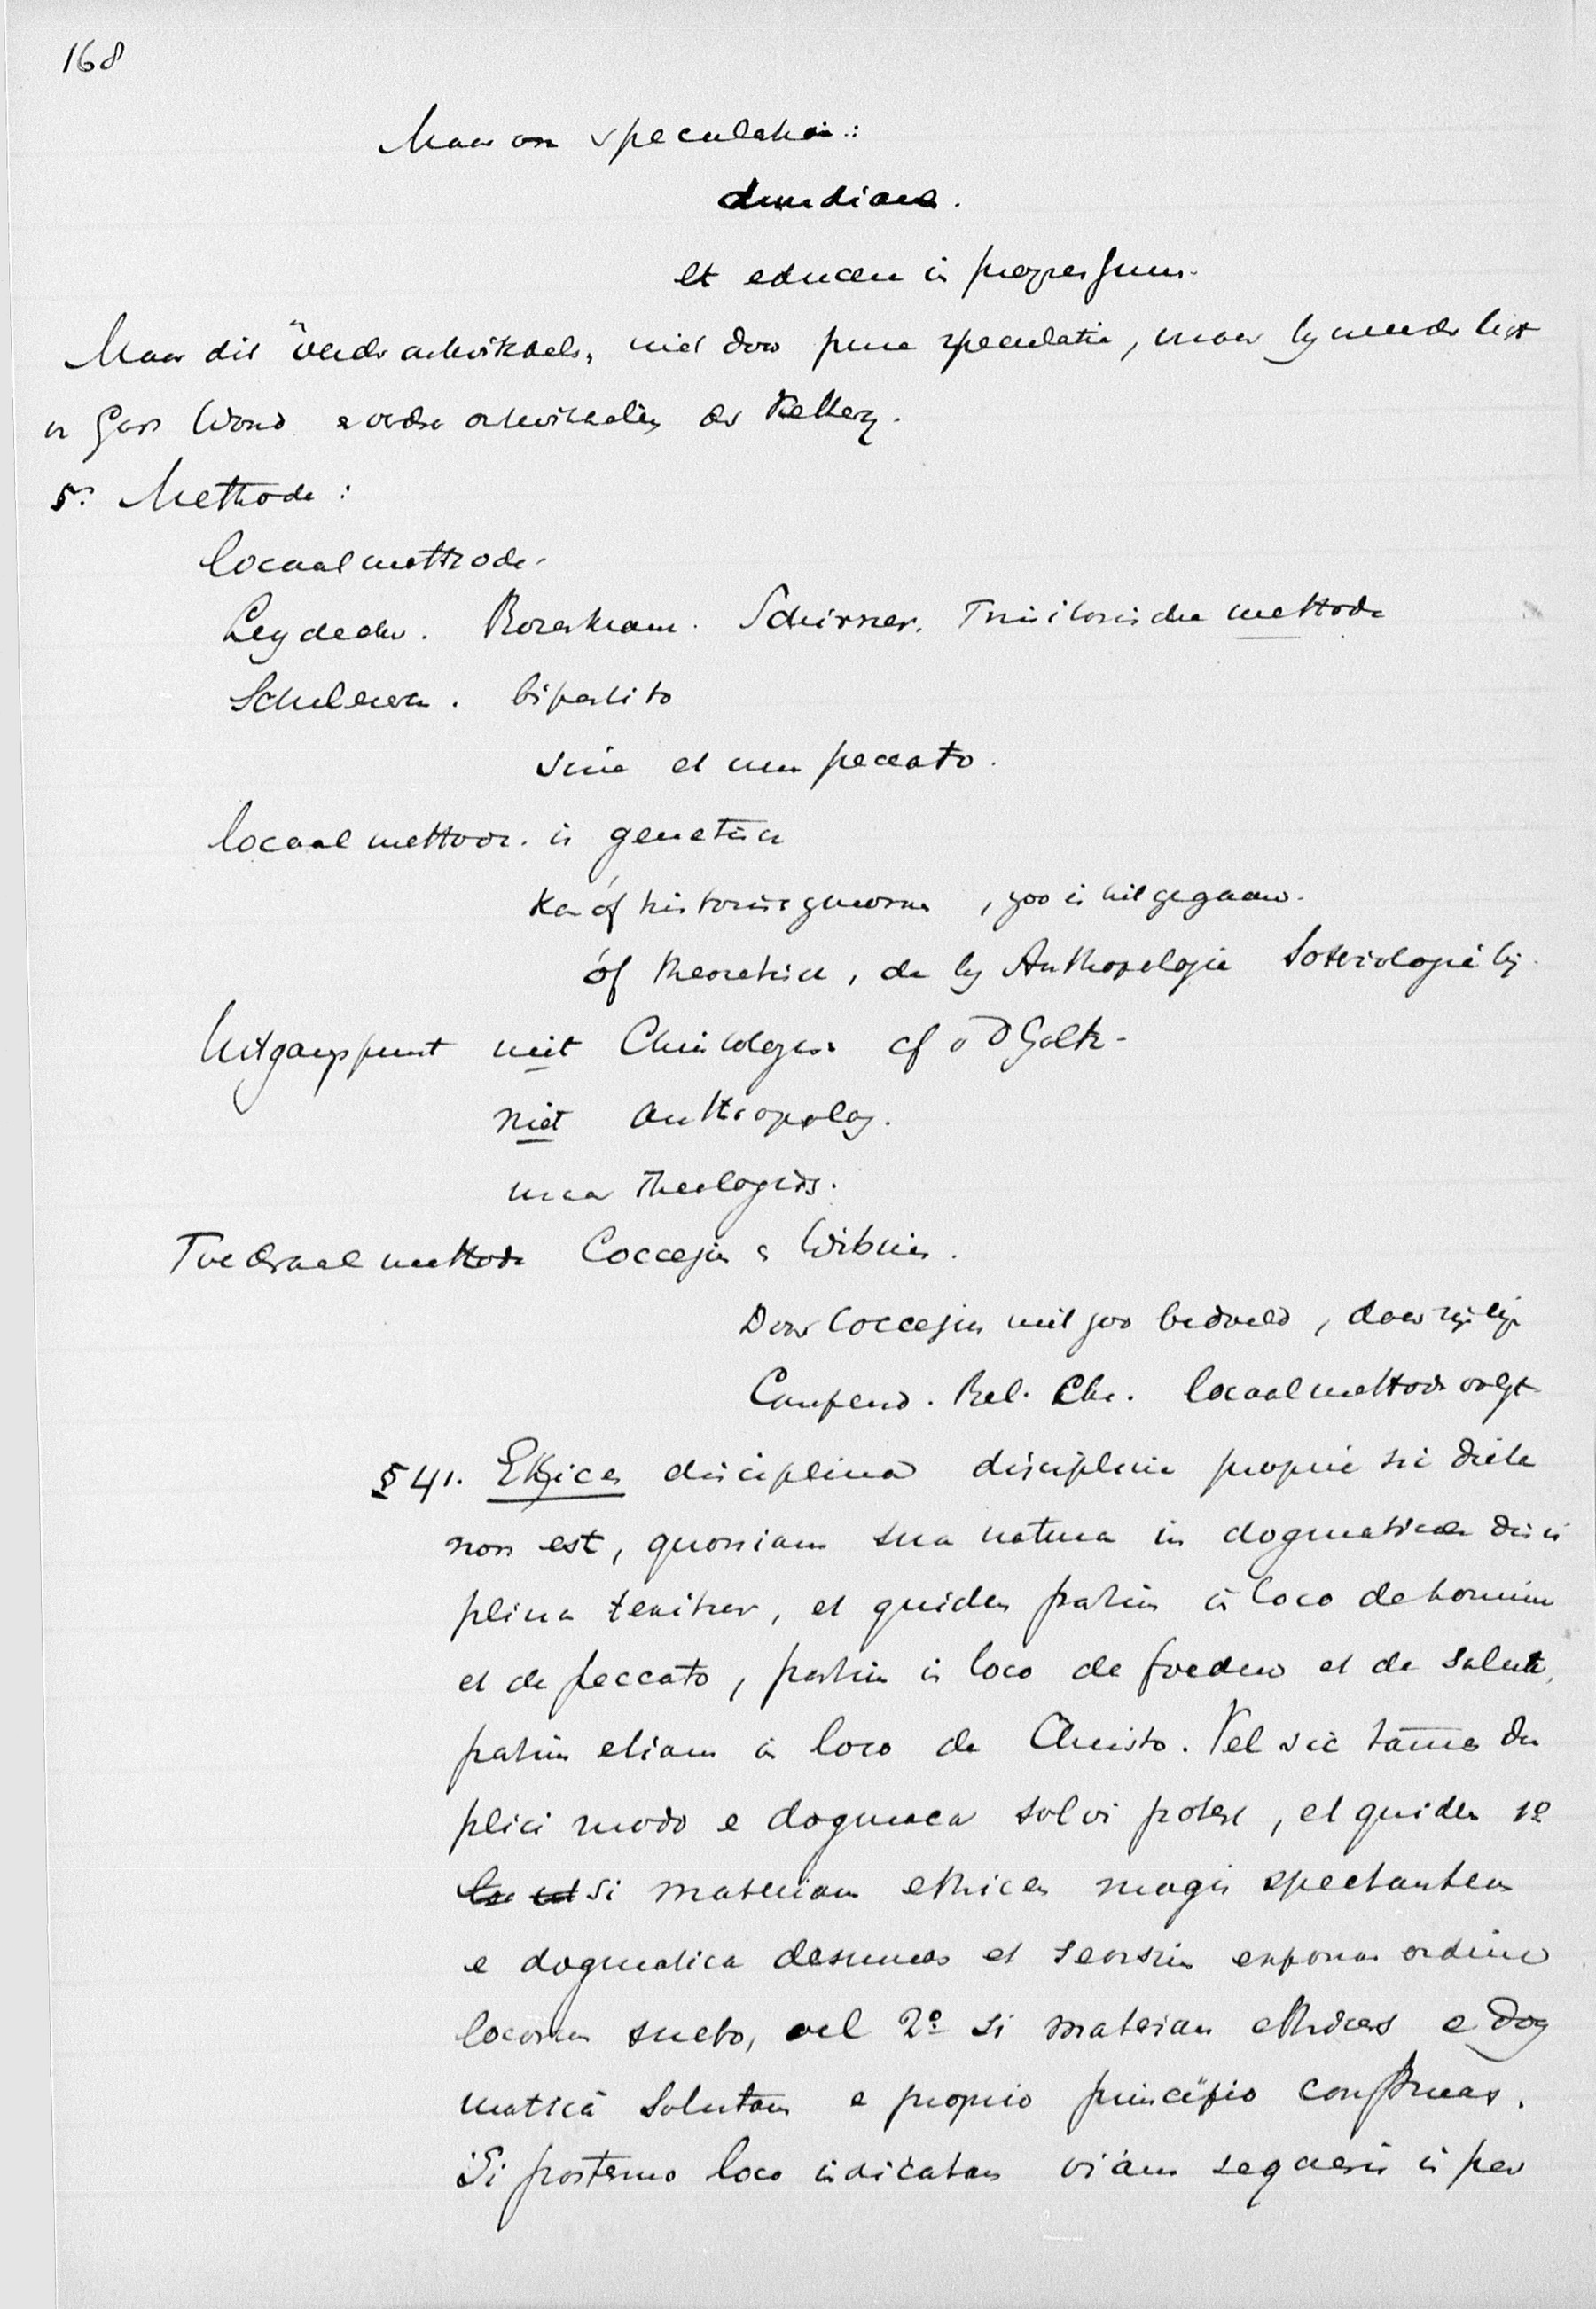 168
Maar om speculatie:
et educere in progressum.
Maar dit "verder ontwikkelen" niet door pure speculatie, maar bij meerder licht
in Gods Woord & verdere ontwikkeling der Ketterij.
5º. Methode:
locaalmethode.
Leydecker. Schirmer. Trinitarische methode
Schulerera. bipartito
sine et cum peccato.
locaalmethode. is genetisch
kan óf historisch genomen, zoo is uitgegaan.
óf theoretisch, de bij Anthropologie Soteriologie bij.
Uitgangspunt niet Christologisch cf v D Goltz.
niet anthropolog.
maar theologisch.
Foederaalmethode Coccejus & Witsius.
Door Coccejus niet zoo bedoeld, daar zijn
Compend. Rel. Chr. locaalmethode volgt
§ 41. Ethices disciplina disciplina proprie sic dicta
non est, quoniam sua natura in dogmatices disci
plina tenetur, et quidem partim in loco de homine
et de peccato, partim in loco de foedere et de salute,
partim etiam in loco de Christo. Vel sic tamen du
plici modo e dogmatica solvi potest, et quidem 1º
si materiam ethicen magis spectantem
e dogmatica desumas et seorsim exponas ordine
locorum sueto, vel 2º si materiam ethices e dog
maticâ solutam e proprio principio construas.
Si postremo loco indicatam viam sequeris in per